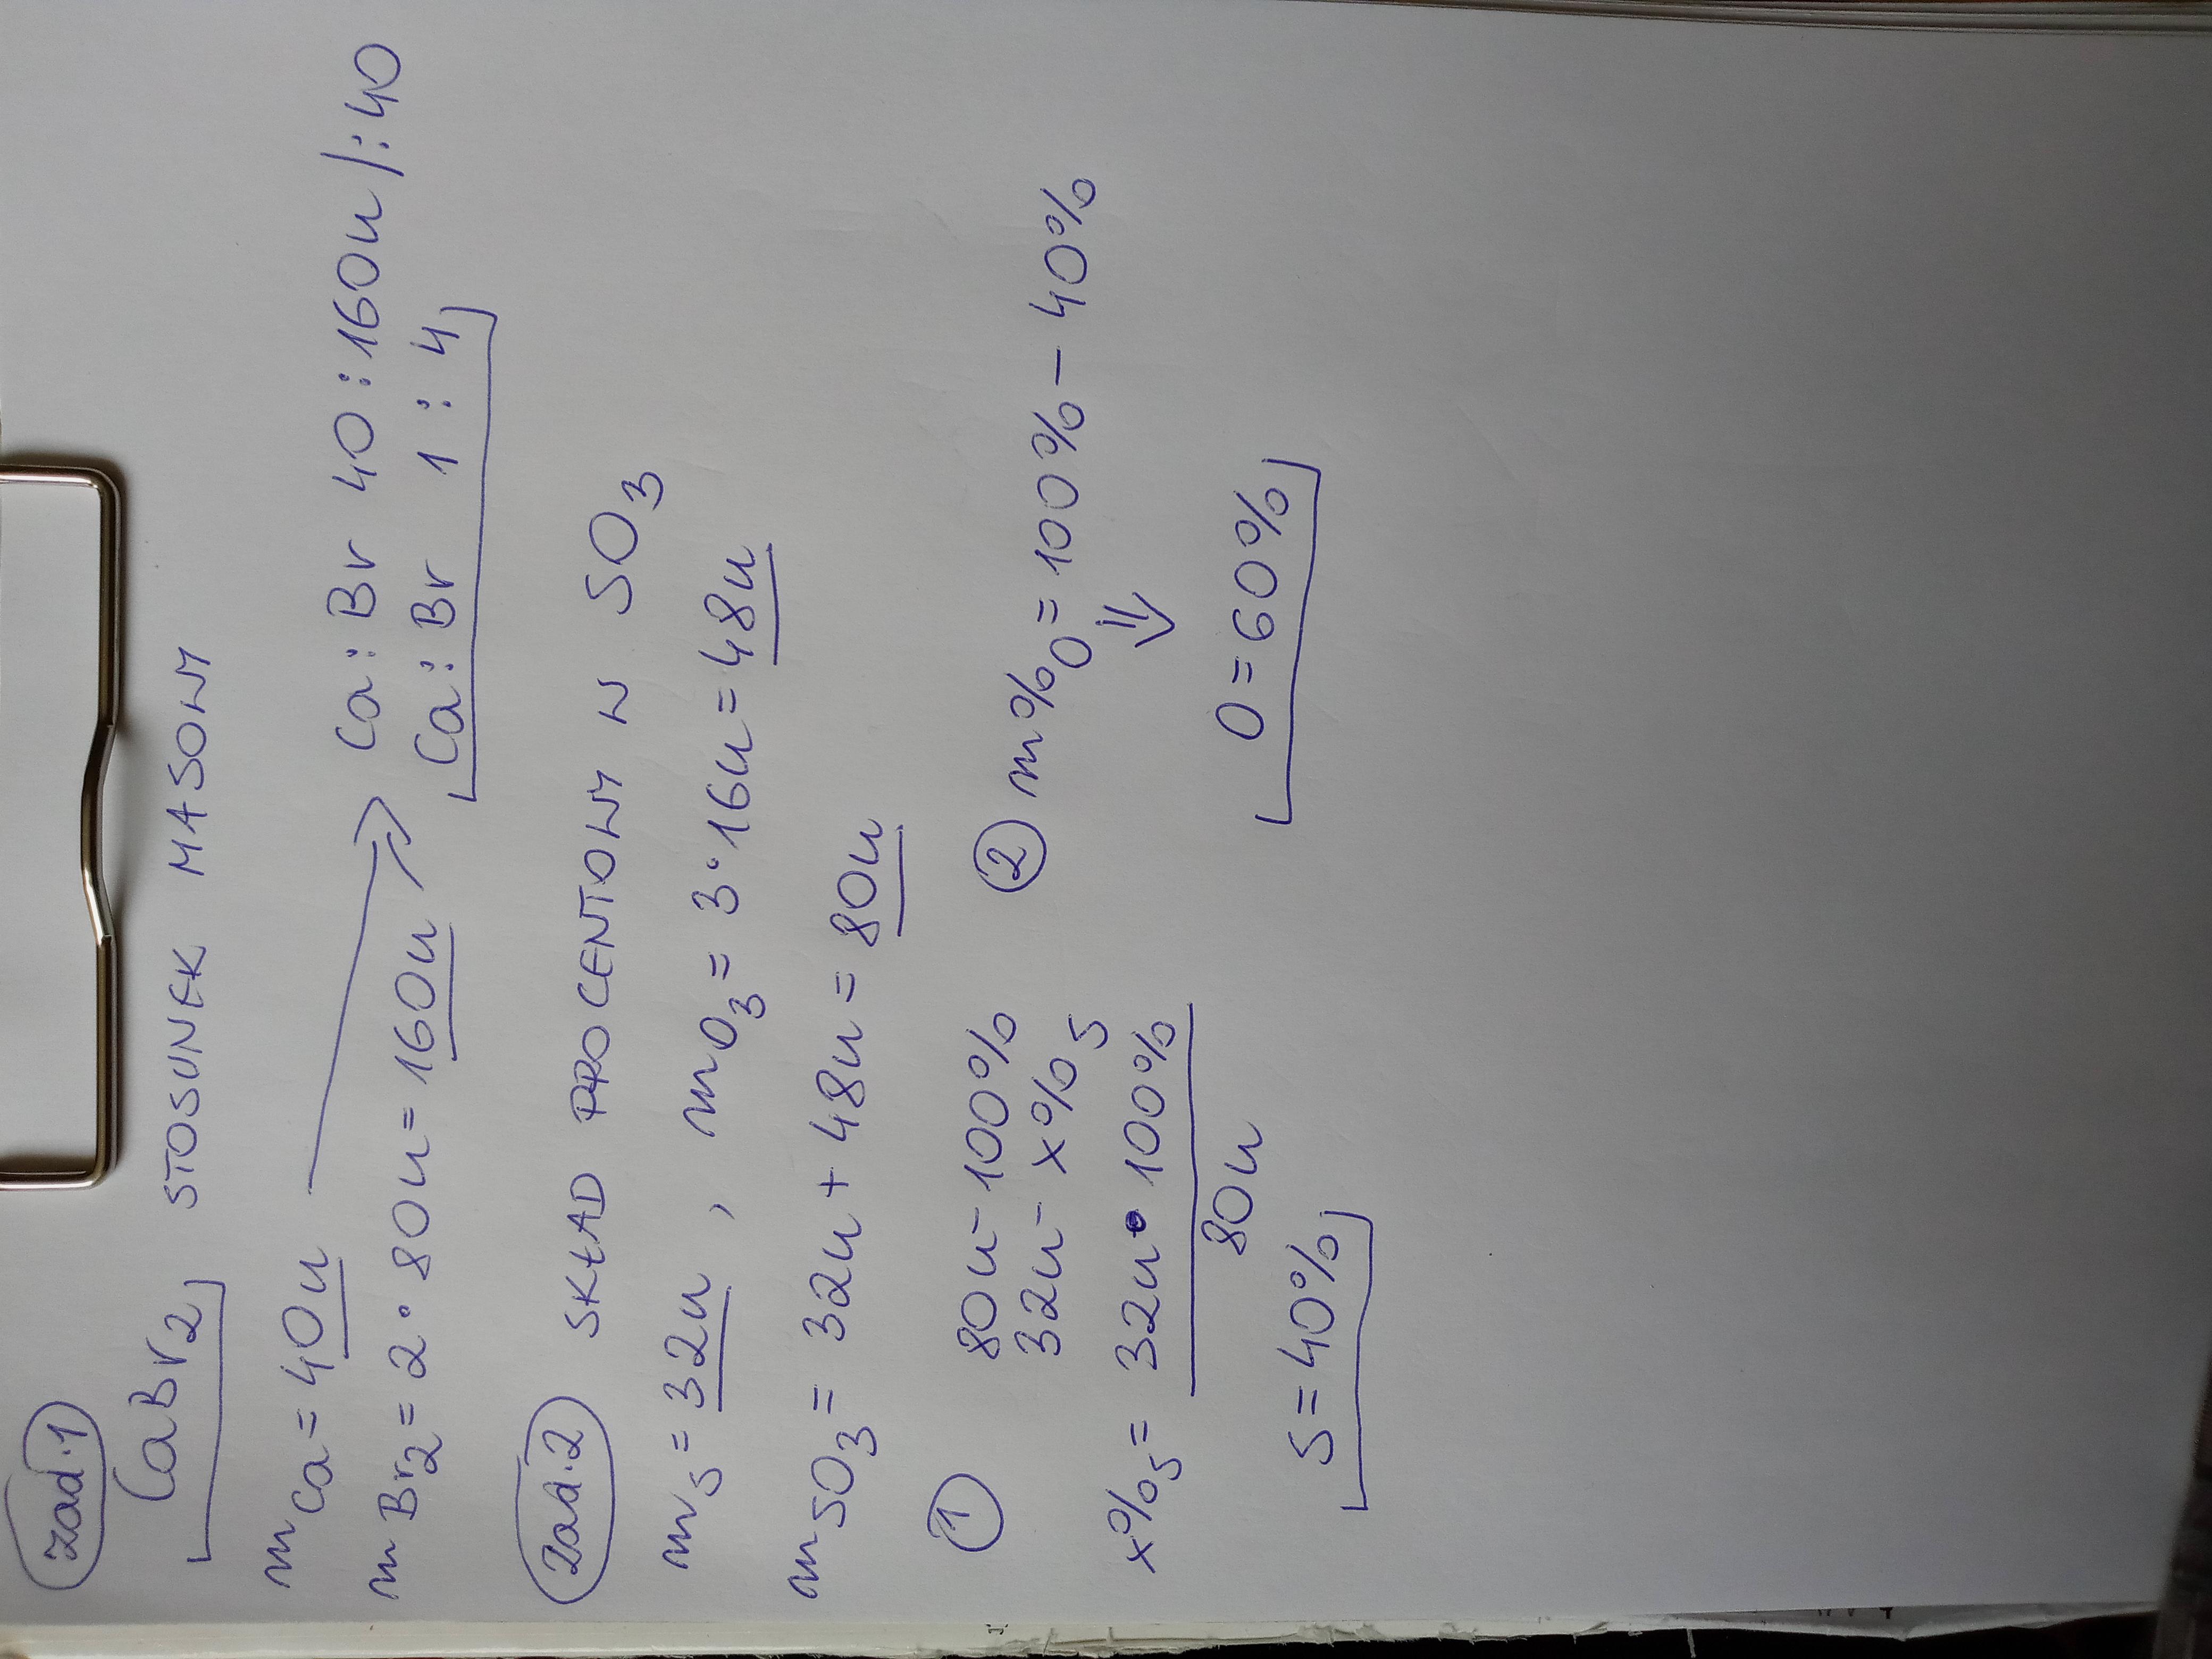 zad.1
CaBr2 STOSUNEK MASOWY
mCa = 40u
mBr2 = 2 · 80u = 160u
Ca : Br 40 : 160u /: 40
Ca : Br 1 : 4
zad.2 SKŁAD PROCENTOWY W SO3
mS = 32u , mO3 = 3 · 16u = 48u
mSO3 = 32u + 48u = 80u
1
80u - 100%
32u - x%S
x%S = 32u · 100%
80u
S = 40%
2 m%O = 100% - 40%
⇓
O = 60%